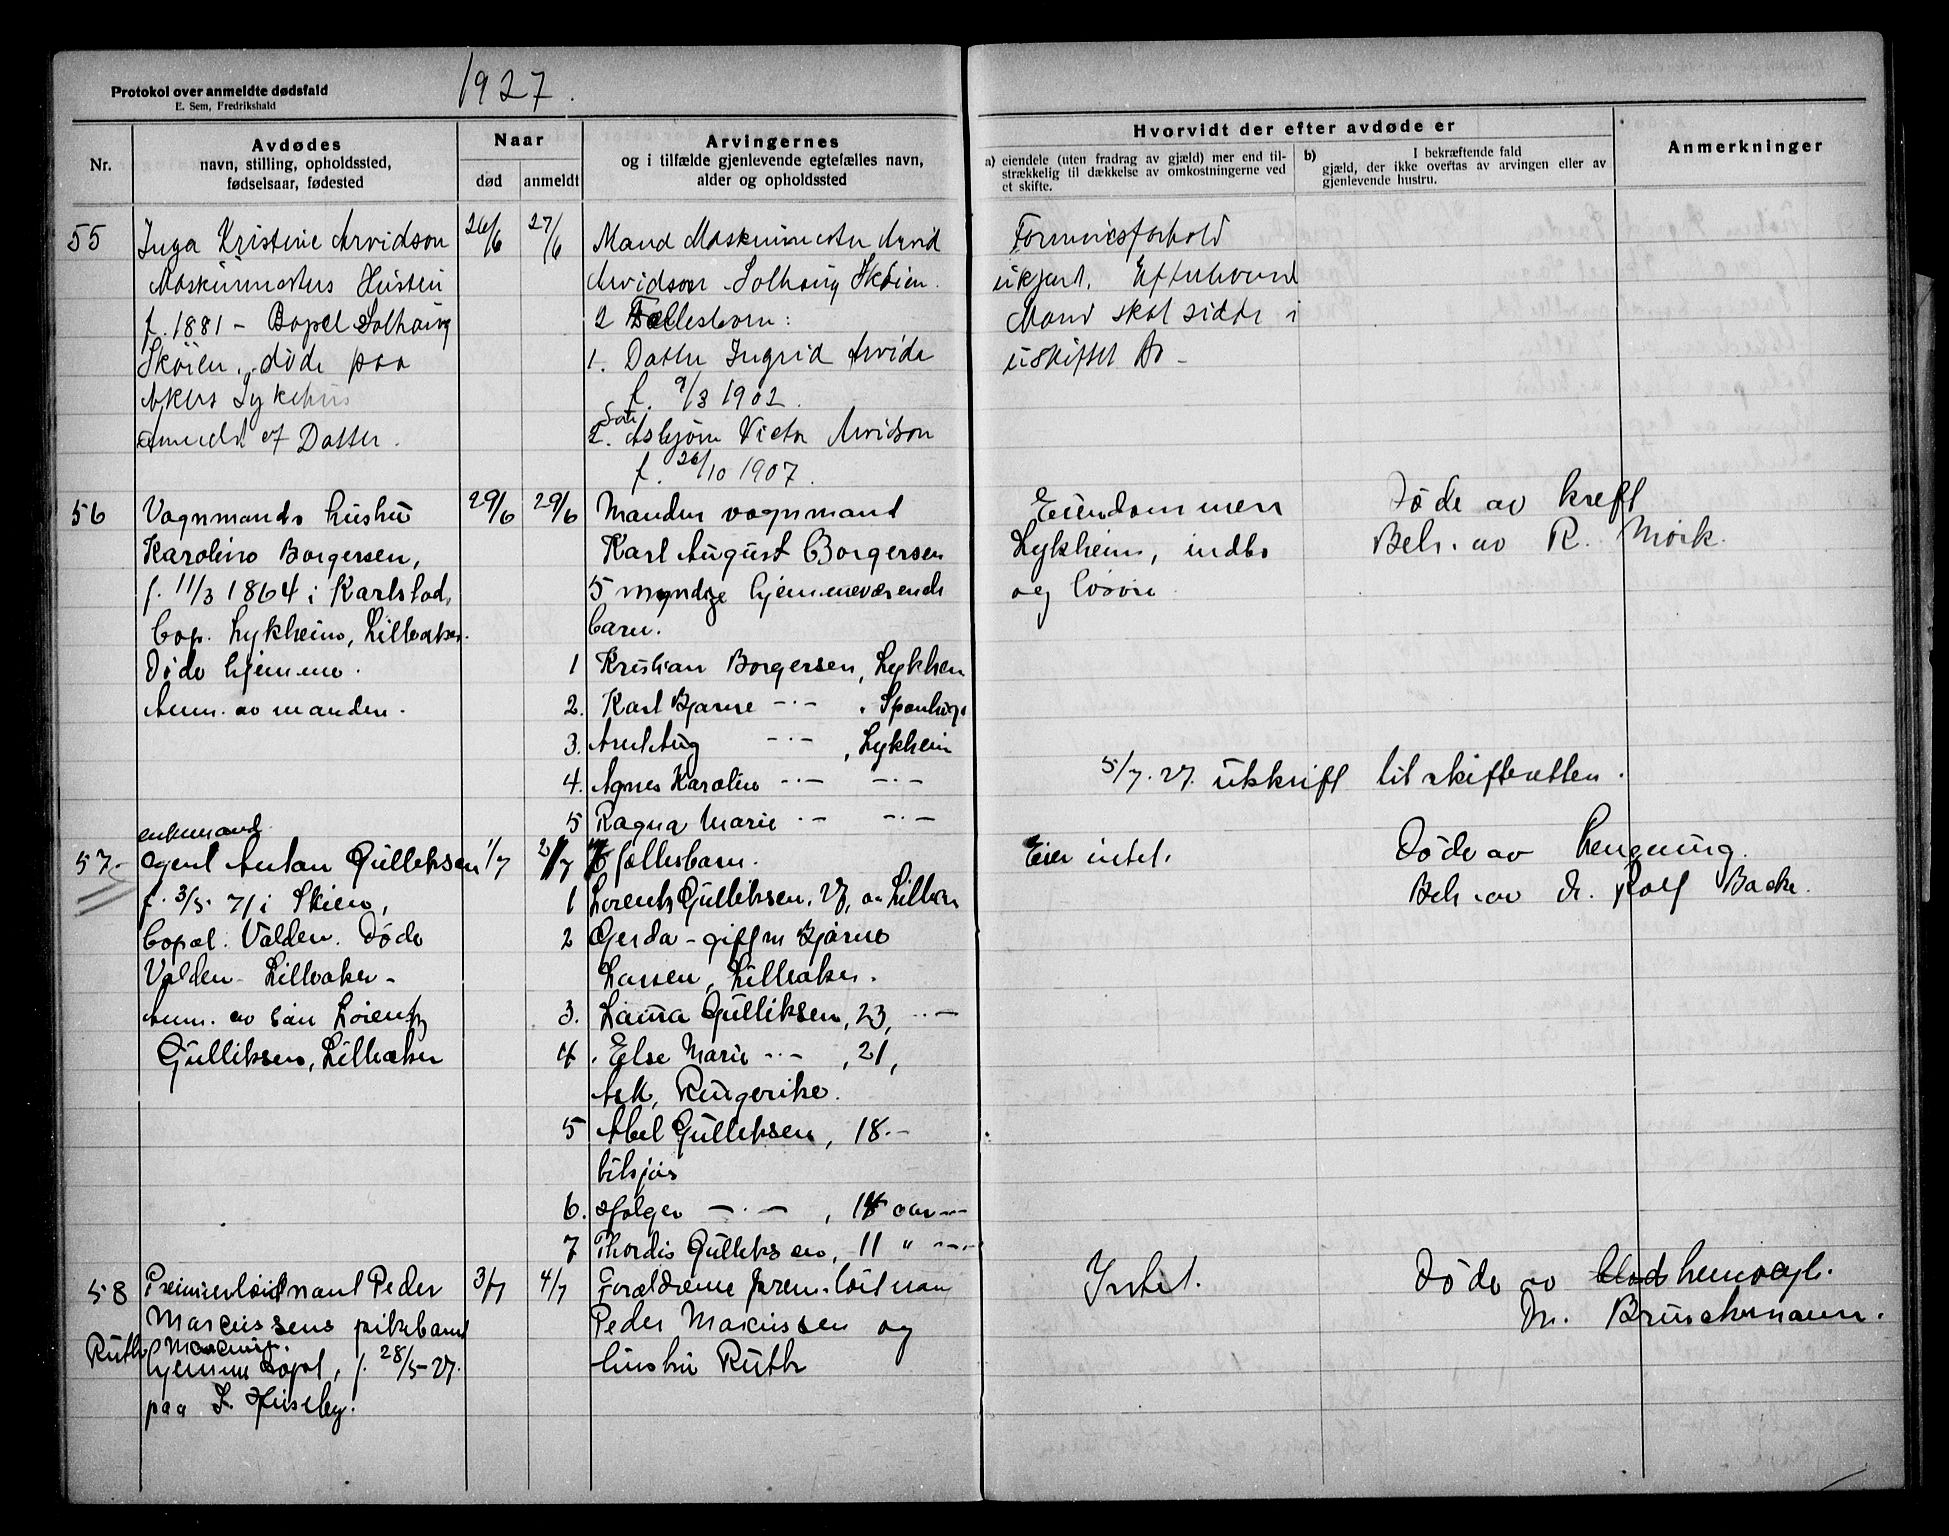 Protokol over anmeldte dødsfald
E. Sem, Fredrikshald
1927.
Nr.
Avdødes
navn, stilling, opholdssted,
fødselsaar, fødested
Naar
død
anmeldt
Arvingernes
og i tilfælde gjenlevende egtefælles navn,
alder og opholdssted
Hvorvidt der efter avdøde er
a) eiendele (uten fradrag av gjæld) mer end til-
strækkelig til dækkelse av omkostningerne ved
et skifte.
b) I bekræftende fald
gjæld, der ikke overtas av arvingen eller av
gjenlevende hustru.
Anmerkninger
55
Inga Kristine Arvidson
Maskinmesters Hustru
f. 1881 - Bopel Solhaug
Skøien, døde paa
Akers Sykehus
anmeldt af Datter.
26/6
27/6
Mand Maskinmester Arvid
Arvidson Solhaug Skøien.
2 Fællesborn:
1. Datter Ingrid Arvids
f. 9/3 1902.
Søn
2. Asbjørn Victor Arvidson
f. 26/10 1907.
Formuesforhold
ukjent. Efterlevend
Mand skal sidde i
uskiftet Bo -
56
Vognmands hustru
Karoline Borgersen,
f. 11/3 1864 i Karlstad,
bop. Lykheim, Lilleaker.
Døde hjemme.
Anm. av manden.
29/6
29/6
Manden vognmand
Karl August Borgersen
5 myndige hjemmeværende
barn.
1 Kristian Borgersen, Lykheim
2. Karl Bjarne -·- ,
3. Aug -·- , Lykheim
4. Agnes Karoline -·- -·-
5 Ragna Marie -·- -·-
Eiendommen
Lykheim, indbo
og løsøre
Døde av kreft
Beh. av R. Mørk.
5/7.27. utskrift til skifteretten.
57
enkemand
agent Anton Gulliksen
f. 3/5. 71 i Skien,
bopæl. Valden. Døde
Valden - Lilleaker -
Anm. av søn Lorentz
Gulliksen, Lilleaker
1/7
2/7
7 fællesbarn.
1 Lorentz Gulliksen, 27, Lilleaker
2 Gerda - gift m Bjarne
Larsen, Lilleaker.
3. Laura Gulliksen, 23, -·-
4. Else Marie -·- , 21,
Ask, Ringerike.
5 Abel Gulliksen, 18 -
tilsjøs
6. Holger -·- , 14 aar -·-
7 Thordis Gulliksen, 11 " -·-
Eier intet.
Døde av hengning.
Beh. av dr. Rolf Backe.
58
Premierløitnant Peder
Marcussens pikebarn
Ruth Marcussen.
hjemme bopæl, f. 28/5-27.
paa L. Huseby.
3/7
4/7
Forældrene prem.løitnan
Peder Marcussen og
hustru Ruth
Intet.
Døde av
Dr. Brunchmann.